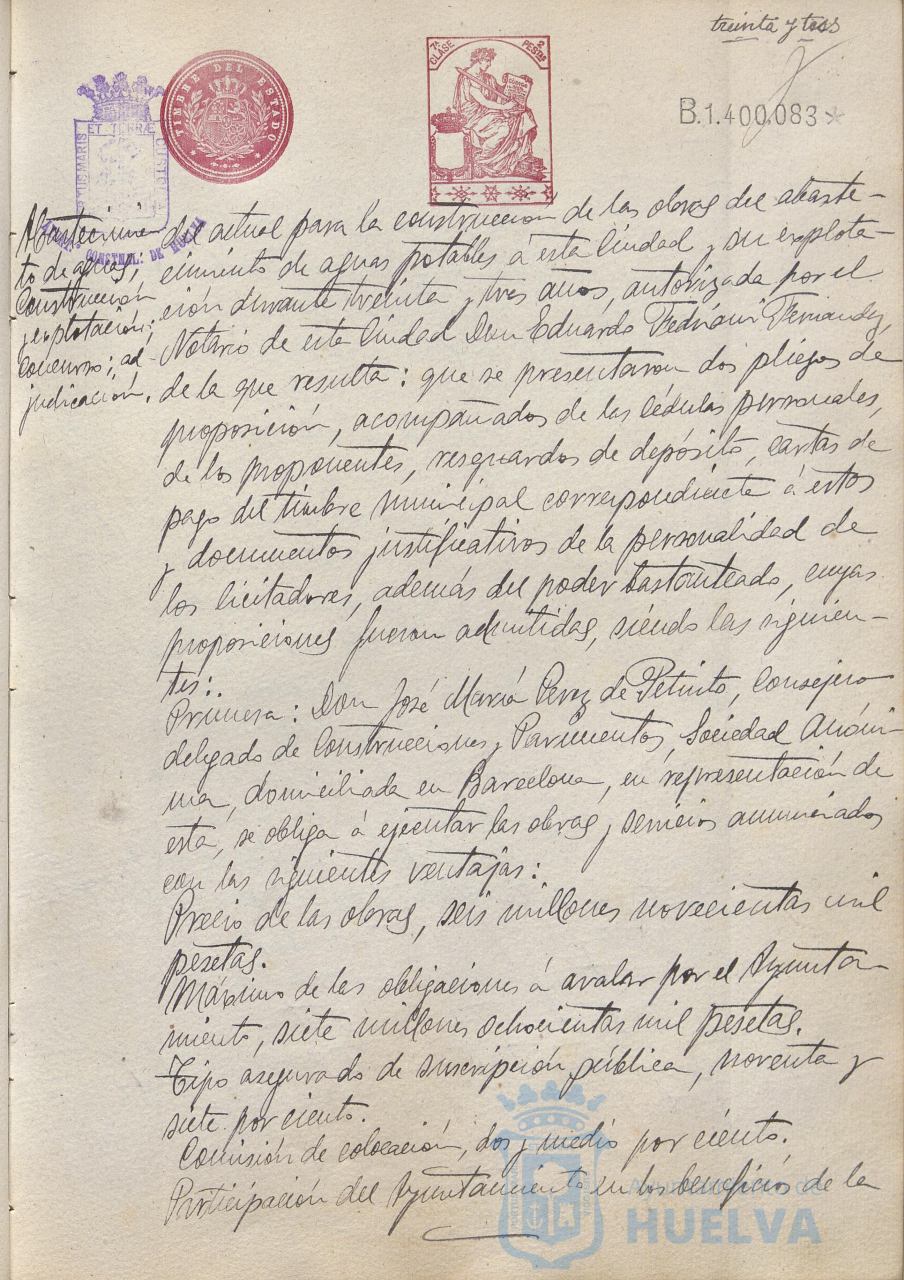 treinta y tres
TIMBRE DEL ESTADO
7ª CLASE
2 PESTAS
B.1.400,083
ET TERRÆ
CUSTO
MARIS
CONSTNL. DE HUELVA
Abastecimien-
to de aguas,
Construcción
y explotación;
Concurso; ad-
judicación.
del actual para la construcción de las obras del abaste-
cimiento de aguas potables á esta Ciudad y su explota-
ción durante treinta y tres años, autorizada por el
Notario de esta Ciudad Don Eduardo Fedriani Fernandez,
de la que resulta: que se presentaron dos pliegos de
proposición, acompañados de las cédulas personales,
de los proponentes, resguardos de depósito, cartas de
pago del timbre municipal correspondiente á estos
y documentos justificativos de la personalidad de
los licitadores, además del poder bastanteado, cuyas
proposiciones fueron admitidas, siendo las siguien-
tes:
Primera: Don José María Perez de Petinto, Consejero
delegado de Construcciones y Pavimentos, Sociedad Anóni-
ma, domiciliada en Barcelona, en representación de
esta, se obliga á ejecutar las obras y servicios anunciados
con las siguientes ventajas:
Precio de las obras, seis millones novecientas mil
pesetas.
Máximo de las obligaciones á avalar por el Ayunta-
miento, siete millones ochocientas mil pesetas.
Tipo asegurado de suscripción pública, noventa y
siete por ciento.
Comisión de colocación, dos y medio por ciento.
Participación del Ayuntamiento en los beneficios de la
Ayuntamiento de
HUELVA